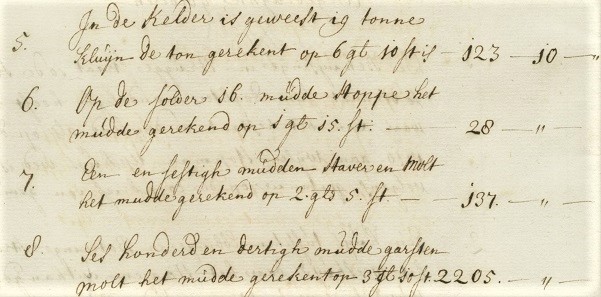 In de Kelder is geweest 19 tonne
5. Kluijn de ton gerekent op 6 gl 10 st is — 123 — 10 — "
6. Op de solder 16. mudde Hoppe het
mudde gerekend op 1 gl 15. st. — 28 — " —
7. Een en sestigh mudden Haver en Molt
het mudde gerekend op 2. gls 5. st — 137. — " —
8. Ses honderd en dertigh mudde garsten
molt het mudde gerekent op 3 gl 10 st. 2205. — " —